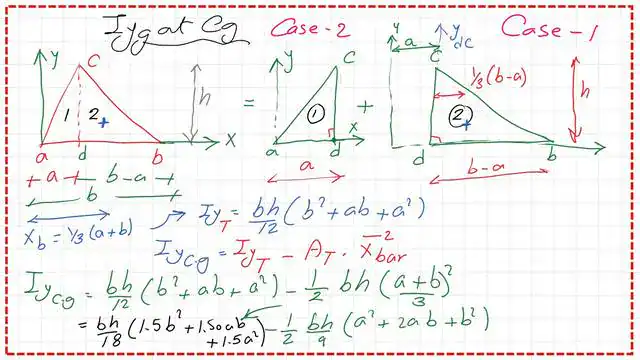 Iyg at Cg
Case-2
Case-1
y
C
h
1
2
a
d
b
x
=
y
C
1
a
d
x
a
+
y
a
y
dc
C
1/3(b-a)
h
2
d
b
b-a
a
b-a
b
x_b = 1/3(a+b)
Iy_T = bh/12 (b² + ab + a²)
Iy_Cg = Iy_T - A_T · x̄²_bar
Iy_Cg = bh/12 (b² + ab + a²) - 1/2 bh (a+b/3)²
= bh/18 (1.5b² + 1.50ab + 1.5a²) - 1/2 bh/9 (a² + 2ab + b²)